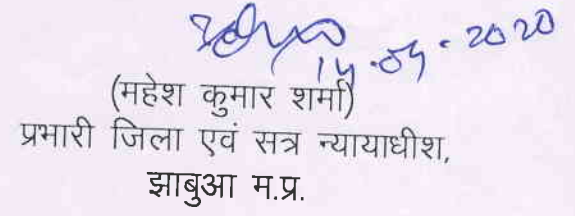 14.04.2020
(महेश कुमार शर्मा)
प्रभारी जिला एवं सत्र न्यायाधीश,
झाबुआ म.प्र.